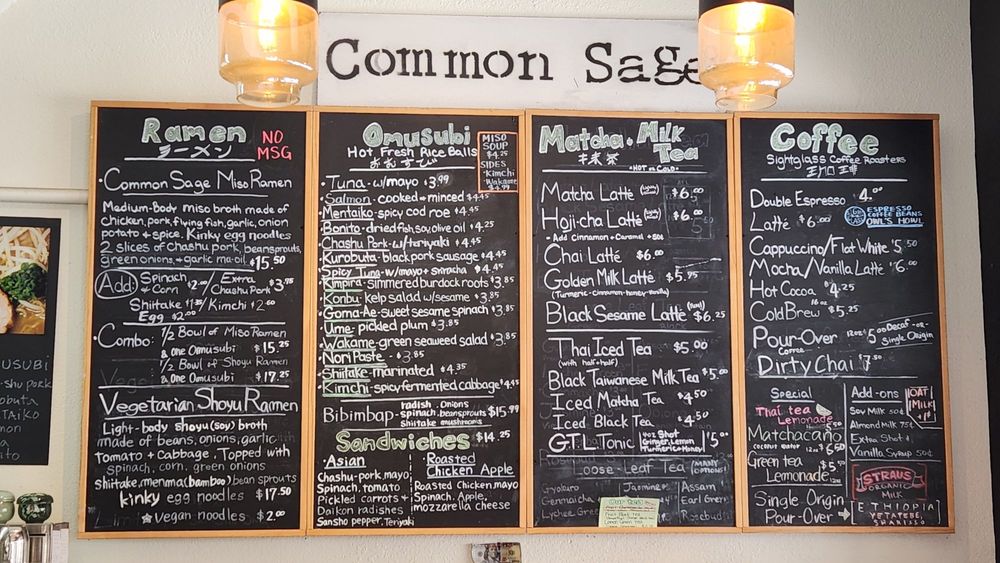 Common Sage
Ramen
ラーメン
NO
MSG
• Common Sage Miso Ramen
Medium-Body miso broth made of
chicken, pork, flying fish, garlic, onion
potato + spice. Kinky egg noodles
2 slices of Chashu pork, beansprouts,
green onions + garlic ma-oil $15.50
Add: Spinach + Corn $2.00 / Extra Chashu Pork $3.75
Shiitake / Kimchi $2.00
Egg $2.00
• Combo: 1/2 Bowl of Miso Ramen
& one Omusubi $15.25
1/2 Bowl of Shoyu Ramen
& one Omusubi $17.25
Vegetarian Shoyu Ramen
Light-body shoyu (soy) broth
made of beans, onions, garlic
Tomato + Cabbage. Topped with
spinach, corn, green onions
Shiitake, menma (bamboo) bean sprouts
kinky egg noodles $17.50
vegan noodles $2.00
Omusubi
Hot Fresh Rice Balls
おむすび
MISO
SOUP
$4.25
SIDES
• Kimchi
• Wakame
$4.99
• Tuna - w/mayo $3.99
• Salmon - cooked + minced $4.45
• Mentaiko - spicy cod roe $4.45
• Bonito - dried fish, soy, olive oil $4.25
• Chashu Pork - w/teriyaki $4.45
• Kurobuta - black pork sausage $4.45
• Spicy Tuna - w/mayo + sriracha $4.45
• Kinpira - simmered burdock roots $3.85
• Konbu - kelp salad w/sesame $3.85
• Goma-Ae - sweet sesame spinach $3.85
• Ume - pickled plum $3.85
• Wakame - green seaweed salad $3.85
• Nori Paste - $3.85
• Shiitake - marinated $4.35
• Kimchi - spicy fermented cabbage $4.45
Bibimbap - radish, onions, spinach, beansprouts, shiitake mushrooms $15.99
Sandwiches $14.25
• Asian
Chashu-pork, mayo,
Spinach, tomato
Pickled carrots +
Daikon radishes
Sansho pepper, Teriyaki
• Roasted
Chicken Apple
Roasted Chicken, mayo
Spinach, Apple,
mozzarella cheese
Matcha + Milk
Tea
抹茶
• HOT or COLD •
Matcha Latte $6.00
Hoji-cha Latte $6.00
• Add Cinnamon + Caramel + 50¢
Chai Latte $6.00
Golden Milk Latte $5.75
(Turmeric-cinnamon-honey-vanilla)
Black Sesame Latte $6.25
Thai Iced Tea $5.00
(with half + half)
Black Taiwanese Milk Tea $5.00
Iced Matcha Tea $4.50
Iced Black Tea $4.50
G.T.L. Tonic 4oz Shot Ginger, Lemon Turmeric + Honey $5.00
Loose-Leaf Tea (MANY OPTIONS)
Gyokuro
Genmaicha
Lychee Green
Jasmine
Assam
Earl Grey
Rosebud
Coffee
Sightglass Coffee Roasters
Double Espresso 4.00
ESPRESSO
COFFEE BEANS
OWL'S HOWL
Latte $6.00
Cappuccino/Flat White $5.50
Mocha/Vanilla Latte $6.00
Hot Cocoa $4.25
Cold Brew 16oz $5.25
Pour-Over Coffee 12oz $5.00 Decaf -or- Single Origin
Dirty Chai $7.50
Special
Thai tea
Lemonade
Matchacano
(coconut water) 12oz $6.50
Green tea
Lemonade $5.50
Single Origin
Pour-Over →
Add-ons
Soy Milk 50¢
Almond Milk 75¢
Extra Shot
Vanilla Syrup 50¢
OAT
MILK
STRAUS
ORGANIC
MILK
ETHIOPIA
YETATEBE,
SHAKISSO